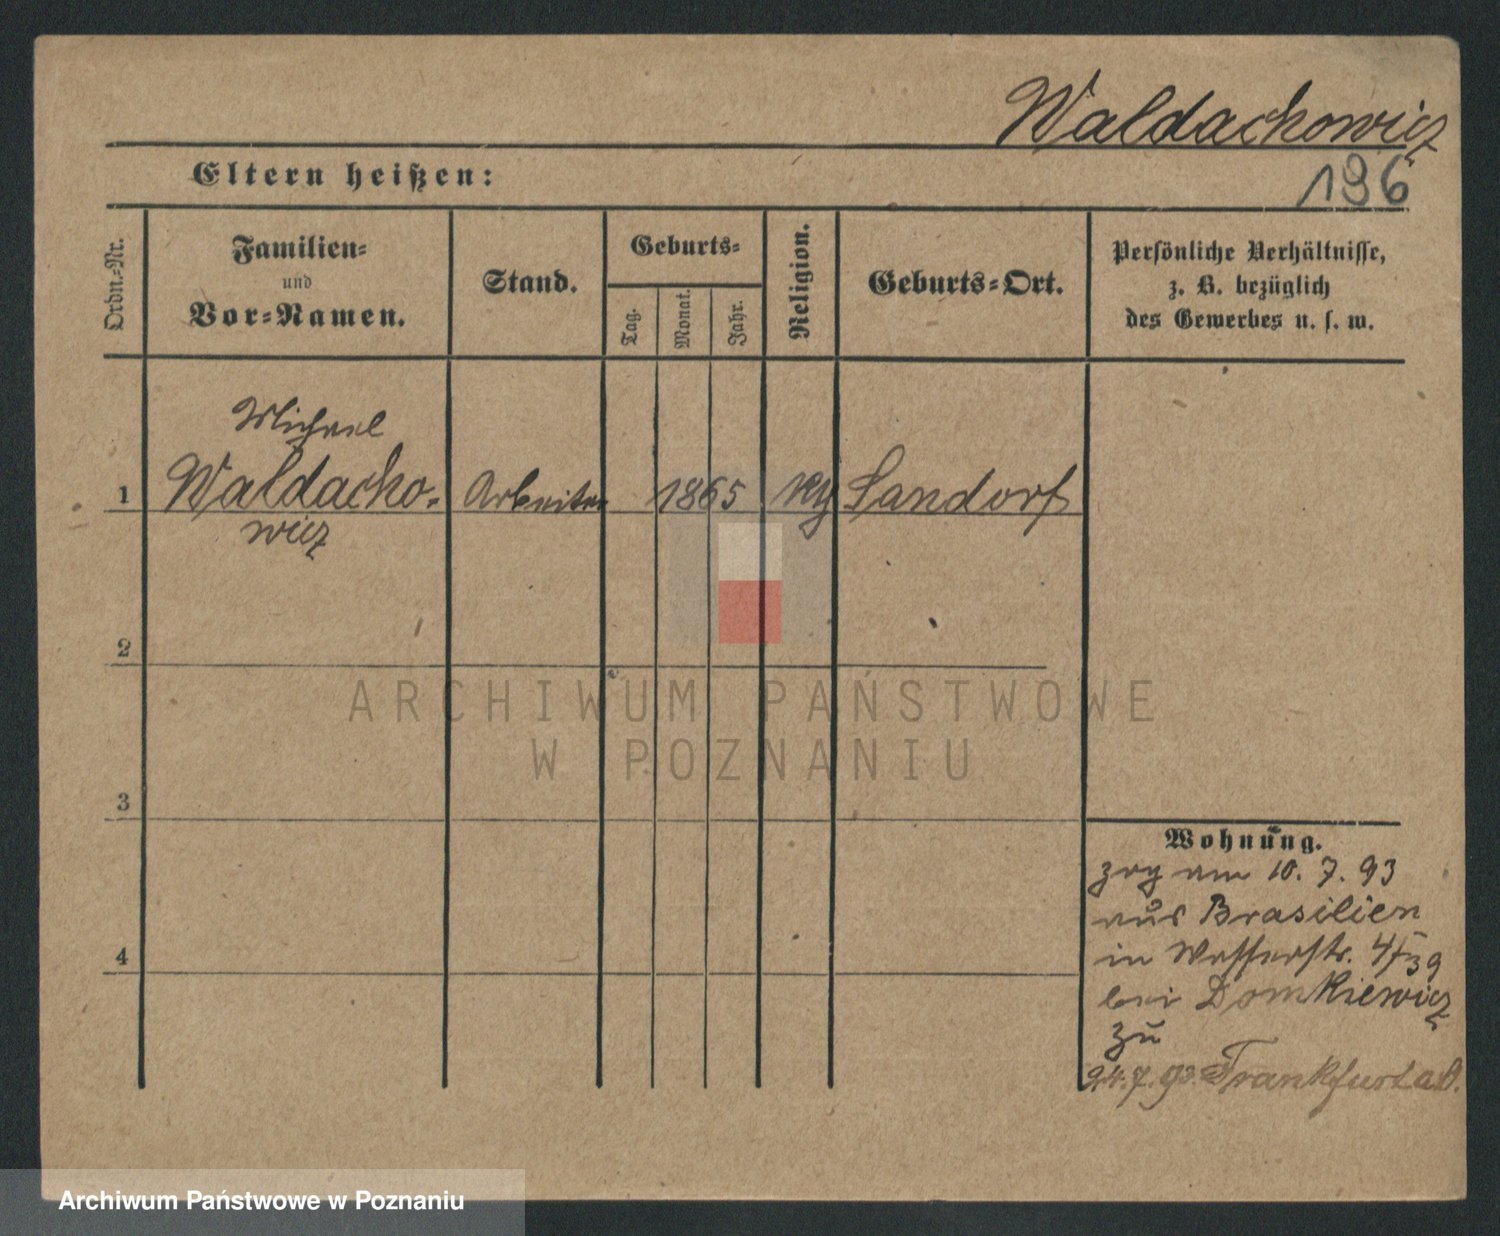 Waldachowicz
196
Eltern heißen:
Ordn.-Nr.
Familien-
und
Vor-Namen.
Stand.
Geburts-
Tag.
Monat.
Jahr.
Religion.
Geburts-Ort.
Persönliche Verhältnisse,
z. B. bezüglich
des Gewerbes u. s. w.
Michael
1 Waldacho- Arbeiter 1865 Sandorf
wicz
2
3
4
Wohnung.
zog am 10. 7. 93
aus Brasilien
in Wasserstr.
bei Domkiewicz
zu
24.7.93. Frankfurt a.O.
ARCHIWUM PAŃSTWOWE
W POZNANIU
Archiwum Państwowe w Poznaniu